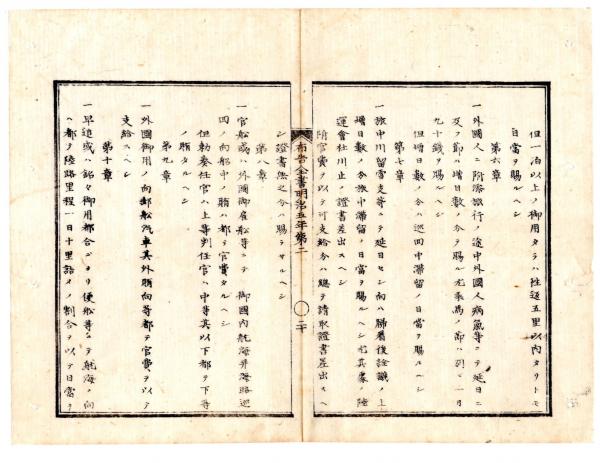 但一泊以上ノ御用タラハ往返五里以内タリトモ
日當ヲ賜ルヘシ
第六章
一外國人ニ附添旅行ノ途中外國人病氣等ニテ延日ニ
及フ節ハ増日數ノ分ヲ賜ル尤乘馬ノ節ハ別ニ一日
九十錢ヲ賜ルヘシ
但増日數ノ分ハ巡回中滯留ノ日當ヲ賜ルヘシ
第七章
一旅中川留雪支等ニテ延日セシ向ハ歸着後詮議ノ上
増日數ノ分旅中滯留ノ日當ヲ賜ルヘシ尤其驛陸
運會社川止ノ證書差出スヘシ
附官費ヲ以テ可支給分ハ總テ請取證書差出スヘ
布告全書明治五年第二
二十
シ證書無之分ハ賜ラサルヘシ
第八章
一官船或ハ外國御雇船等ニテ御國内航海并海路巡
四ノ向船中ノ賄ハ都テ官費タルヘシ
但勅奏任官ハ上等判任官ハ中等其以下都テ下等
ノ賄タルヘシ
第九章
一外國御用ノ向郵船汽車其外賄向等都テ官費ヲ以テ
支給スヘシ
第十章
一早追或ハ銘々御用都合ニヨリ便船等ニテ航海ノ向
ヘ都テ陸路里程一日十里詰メノ割合ヲ以テ日當ヲ